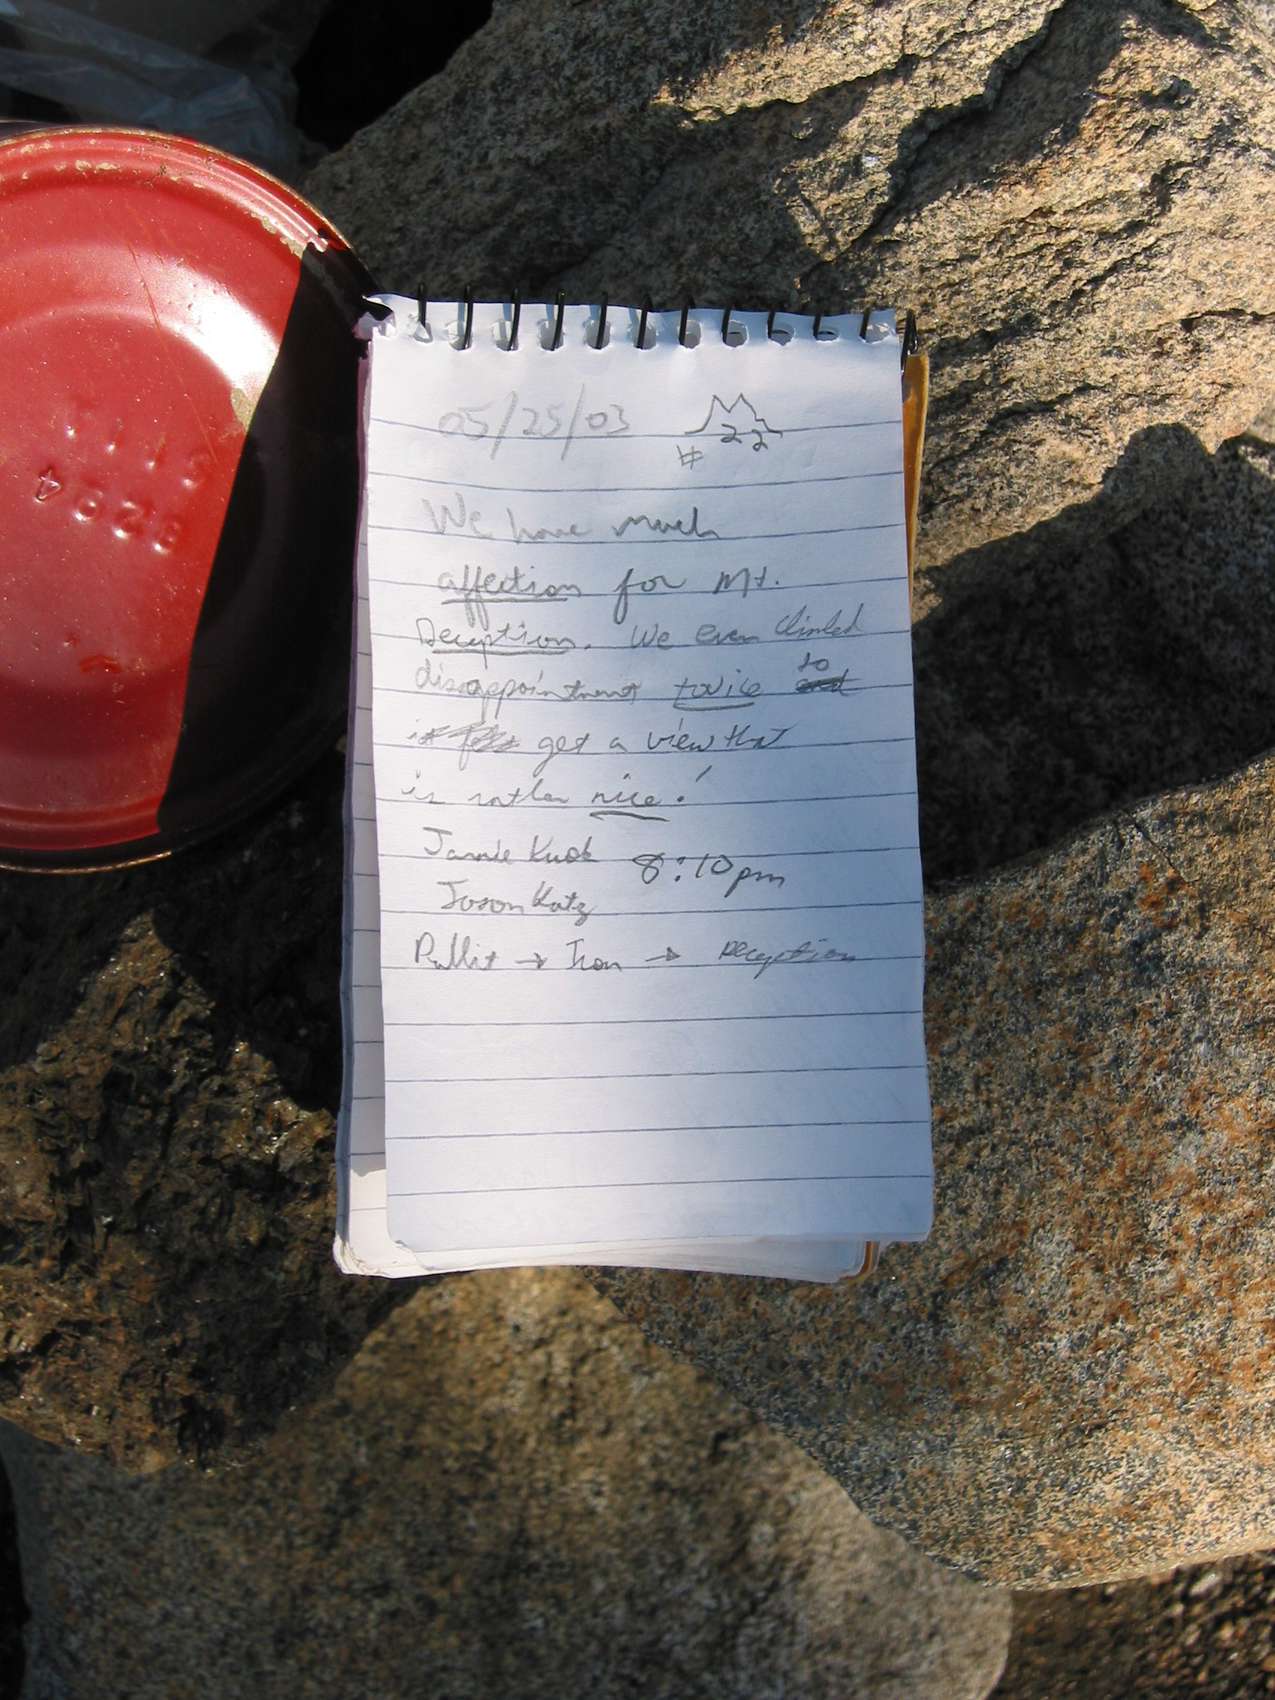 05/25/03
# 22
We have much
affection for Mt.
Deception. We even climbed
disappointment twice to
get a view that
is rather nice!
Jamie
8:10pm
Jason Katz
→ Iron → Deception
8294